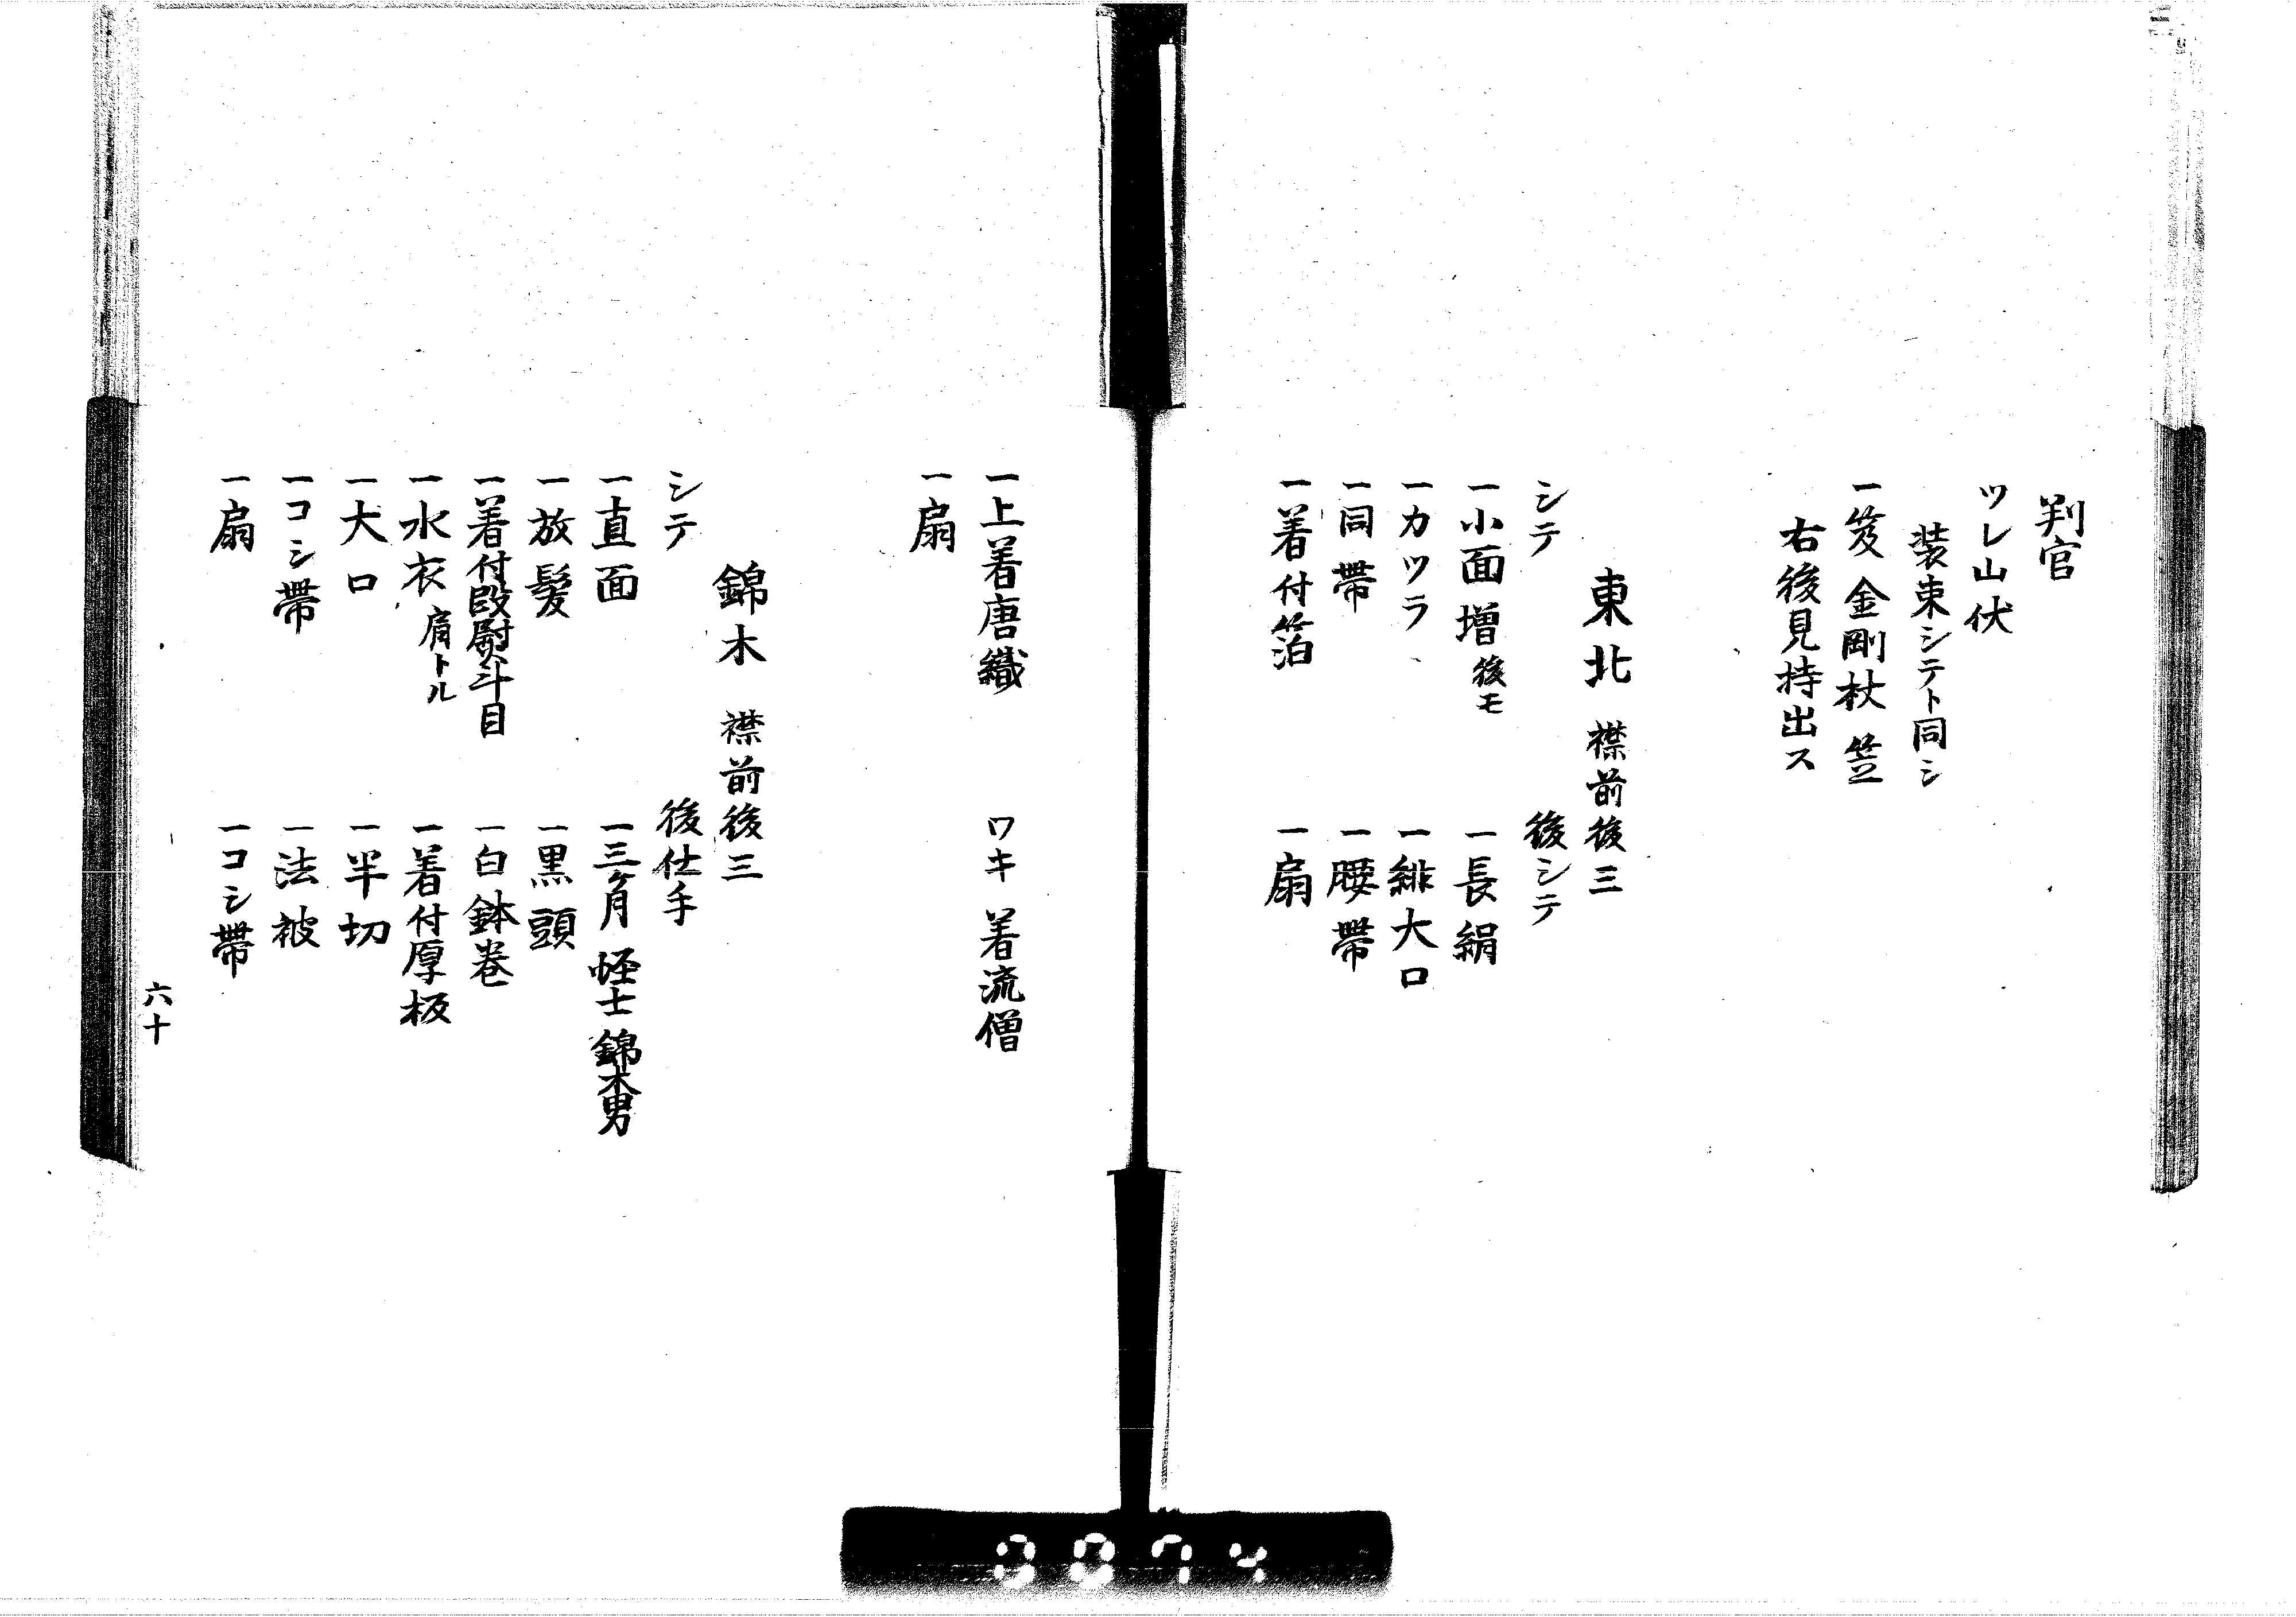 判官
ツレ山伏
装束シテト同シ
一笈 金剛杖 笠
右後見持出ス
東北 襟前後三
シテ
後シテ
一小面 増 後モ
一長絹
一カツラ
一緋大口
一同帯
一腰帯
一着付箔
一扇
一上着唐織
ワキ 着流僧
一扇
錦木 襟前後三
シテ
後仕手
一直面
一三ヶ月 怪士 錦木男
一放髪
一黒頭
一着付段熨斗目
一白鉢巻
一水衣 肩トル
一着付厚板
一大口
一半切
一コシ帯
一法被
一扇
一コシ帯
六十